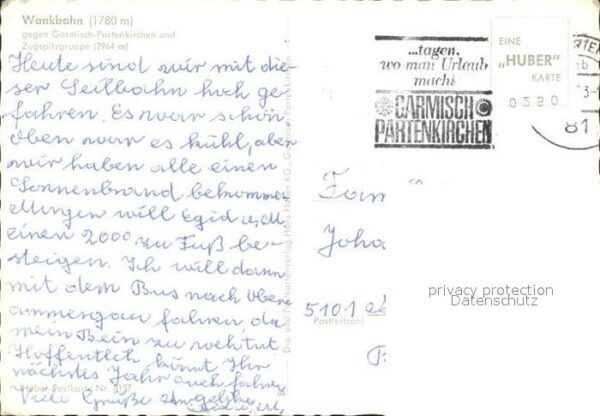 Wankbahn (1780 m)
gegen Garmisch-Partenkirchen und
Zugspitzgruppe (2964 m)
Heute sind wir mit die-
ser Seilbahn hoch ge
fahren. Es war schön
oben war es kühl, aber
wir haben alle einen
Sonnenbrand bekommen
Morgen will Egid
einen 2000 zu Fuß be-
steigen. Ich will dann
mit dem Bus nach Ober
ammergau fahren, da
mein Bein zu weh tut.
Hoffentlich könnt Ihr
nächstes Jahr auch fahren
Viele Grüße
Huber-Postkarte Nr. 8157
...tagen,
wo man Urlaub
macht
GARMISCH
PARTENKIRCHEN
EINE
„HUBER"
KARTE
0320
81
Fam
Joha
5101
Postleitzahl
privacy protection
Datenschutz